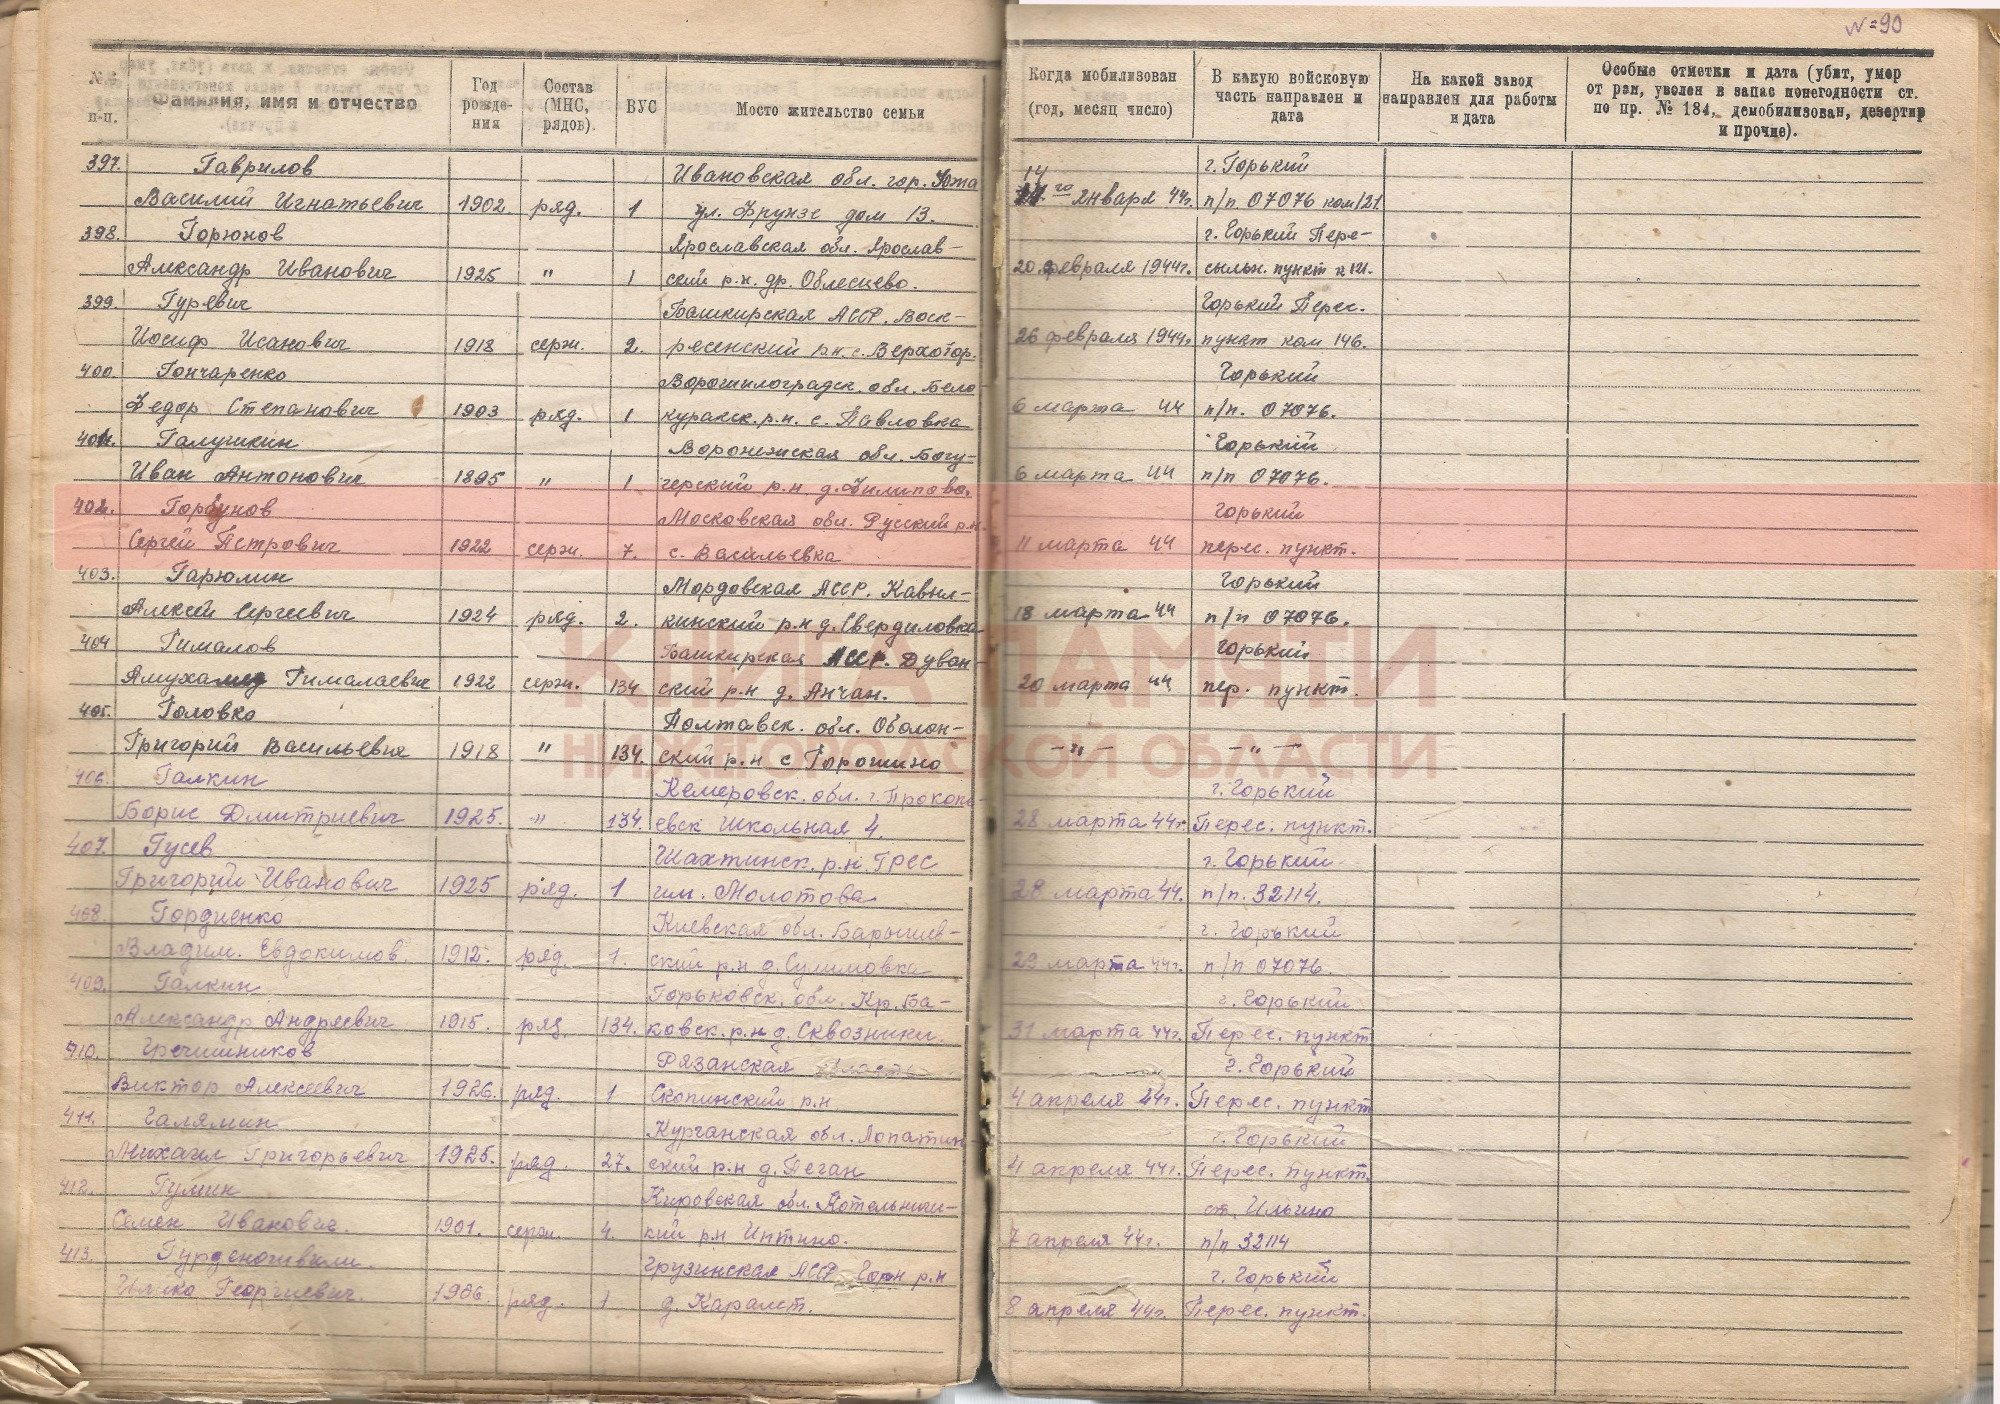 №90
№№ п-п.
Фамилия, имя и отчество
Год рожде-ния
Состав (МНС, рядов).
ВУС
Мосто жительство семьи
Когда мобилизован (год, месяц число)
В какую войсковую часть направлен и дата
На какой завод направлен для работы и дата
Особые отметки и дата (убит, умер от ран, уволен в запас понегодности ст. по пр. № 184, демобилизован, дезертир и прочие).
397. Гаврилов Ивановская обл. гор. Южа 14 г. Горький
Василий Игнатьевич 1902. ряд. 1 ул. Фрунзе дом 13. го января 44г. п/п. 07076 ком/21.
398. Горюнов Ярославская обл. Ярослав- г. Горький Пере-
Александр Иванович 1925 " 1 ский р.н. др. Облесцево. 20 февраля 1944г. сыльн. пункт к 121.
399. Гуревич Башкирская АССР. Воск- Горький Перес.
Иосиф Исакович 1918 серж. 2. ресенский р.н. с. Верхотор. 26 февраля 1944г. пункт ком 146.
400. Гончаренко Ворошилоградск. обл. Бело- Горький
Федор Степанович 1903 ряд. 1 куракск. р.н. с. Павловка 6 марта 44 п/п. 07076.
401. Галушкин Воронежская обл. Богу- Горький
Иван Антонович 1895 " 1 черский р.н д. Филипово. 6 марта 44 п/п 07076.
402. Горбунов Московская обл. Русский р.н. Горький
Сергей Петрович 1922 серж. 7. с. Васильевка 11 марта 44 перес. пункт.
403. Гарюлин Мордовская АССР. Кавыл- Горький
Алексей Сергеевич 1924 ряд. 2. кинский р.н д. Свердиловка 18 марта 44 п/п 07076.
404 Гималов Башкирская АССР. Дуван- Горький
Амухамед Гималаевич 1922 серж. 134 ский р.н д. Анчан. 20 марта 44 пер. пункт.
405. Головко Полтавск. обл. Оболон-
Григорий Васильевич 1918 " 134. ский р.н с Горошино -"- -"-
406. Галкин Кемеровск. обл. г. Прокопь- г. Горький
Борис Дмитриевич 1925. " 134. евск Школьная 4. 28 марта 44г. Перес. пункт.
407. Гусев Шахтинск. р.н. ГРЕС г. Горький
Григорий Иванович 1925 ряд. 1 им. Молотова 28 марта 44. п/п. 32114.
408. Гордиенко Киевская обл. Барышев- г. Горький
Владим. Евдокимов. 1912. ряд. 1. ский р.н д. Сулимовка 29 марта 44г. п/п 07076.
409. Галкин Горьковск. обл. Кр. Ба- г. Горький
Александр Андреевич 1915. ряд. 134. ковск. р.н д. Сквозники. 31 марта 44г. Перес. пункт
410. Гречишников Рязанская область г. Горький
Виктор Алексеевич 1926. ряд. 1 Скопинский р.н 4 апреля 44г. Перес. пункт
411. Галямин Курганская обл. Лопатин- г. Горький
Михаил Григорьевич 1925. ряд. 27. ский р.н д. Пеган 4 апреля 44г. Перес. пункт.
412. Гулин Кировская обл. Котельнич- ст. Ильино
Семен Иванович. 1901. серж. 4. кий р.н Интино. 7 апреля 44г. п/п 32114
413. Грузинская АССР Горн р.н г. Горький
Георгиевич. 1906. ряд. 1 д. Каралет. 8 апреля 44г. Перес. пункт.
КНИГА ПАМЯТИ
НИЖЕГОРОДСКОЙ ОБЛАСТИ